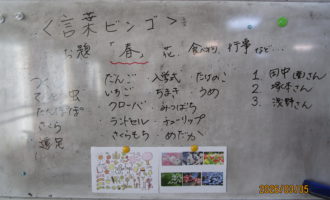 ＜言葉ビンゴ＞
お題 「春」 花、食べ物、行事など…
だんご 入学式 たけのこ
いちご ちまき うめ
たんぽぽ クローバー みつばち
さくら ランドセル チューリップ
遠足 さくらもち めだか
1. 田中(恵)さん
2. 塚本さん
3. 浅野さん
2023/03/05